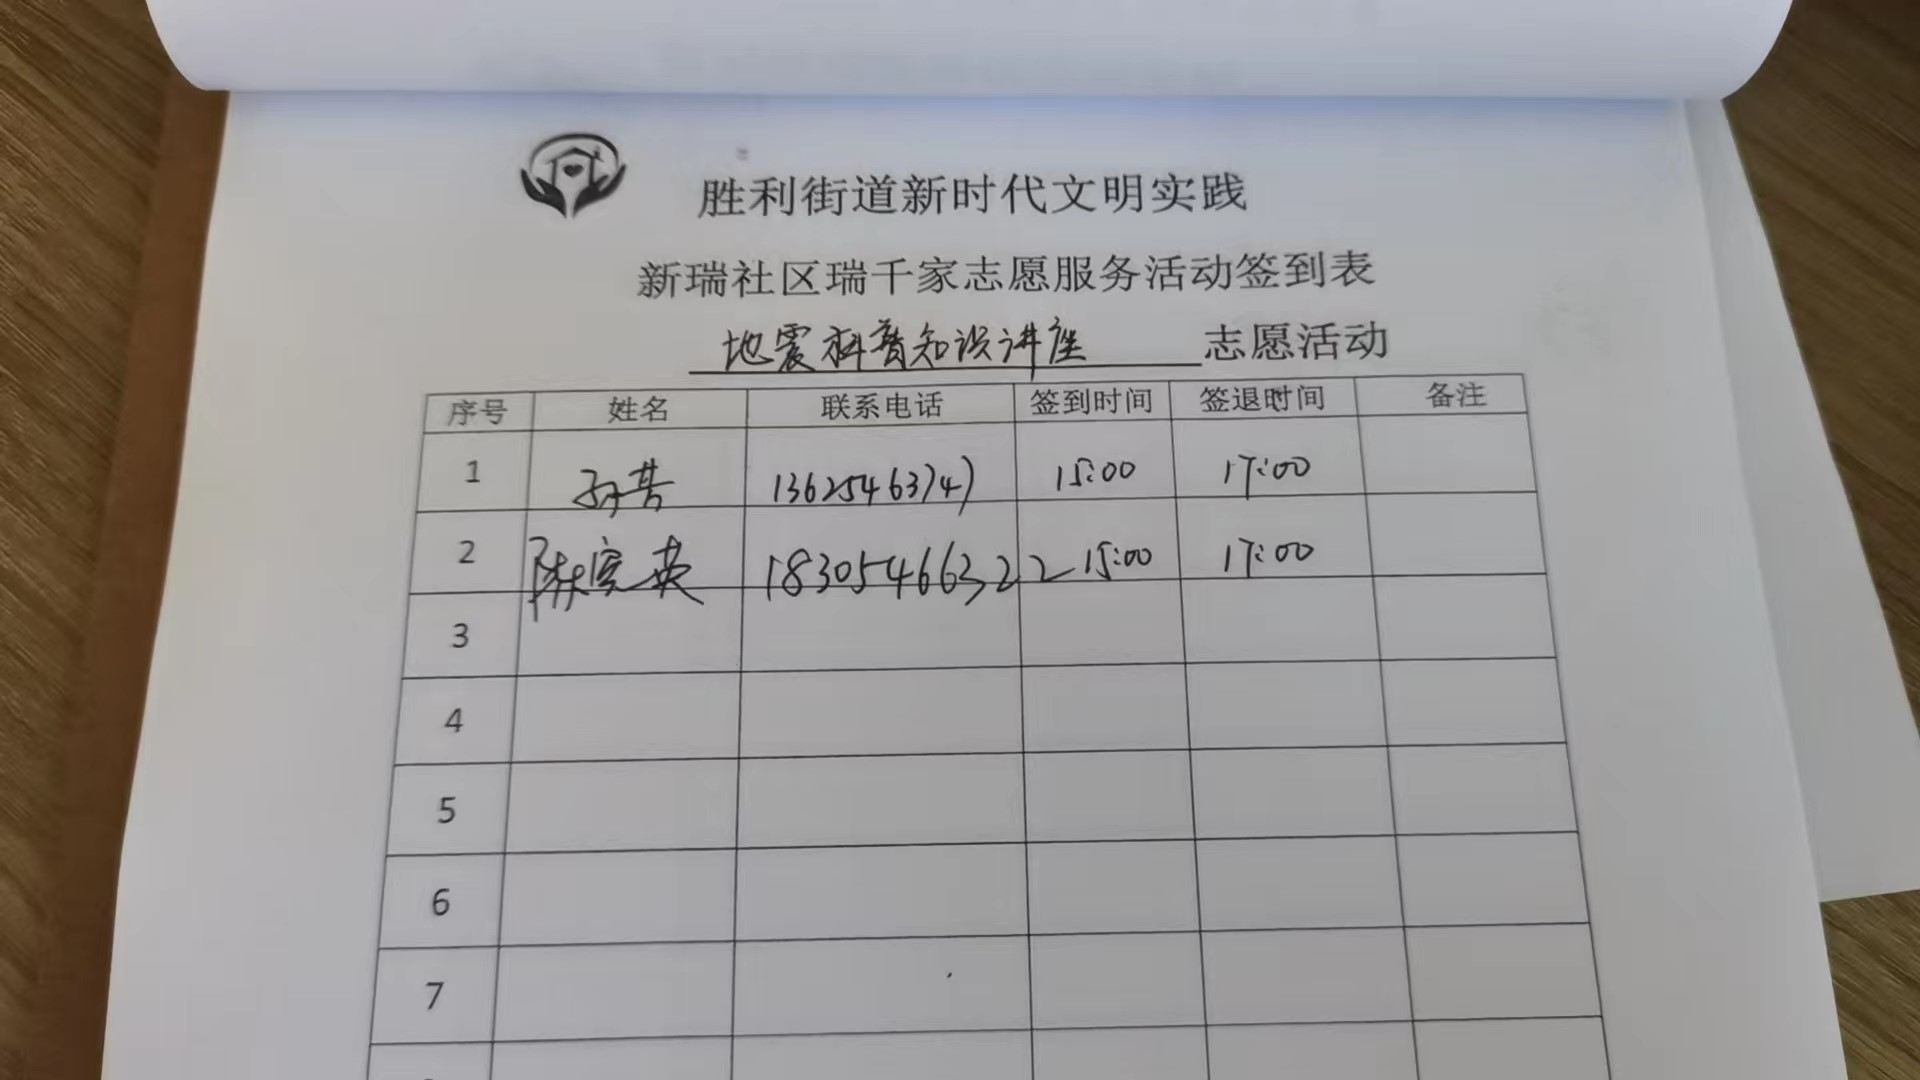 胜利街道新时代文明实践
新瑞社区瑞千家志愿服务活动签到表
地震科普知识讲座 志愿活动
序号 姓名 联系电话 签到时间 签退时间 备注
1 13625463747 15:00 17:00
2 陈宪英 18305466322 15:00 17:00
3
4
5
6
7